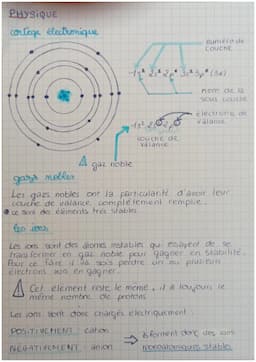 PHYSIQUE
cortège électronique
numéro de couche
nom de la sous couche
électrons de valence
couche de valence
⚠ gaz noble
gazs nobles
Les gazs nobles ont la particularité d'avoir leur
couche de valence complètement remplie.
• ce sont des éléments très stables
les ions
Les ions sont des atomes instables qui essayent de se
transformer en gaz noble pour gagner en stabilité.
Pour ce faire il va soit perdre un ou plusieurs
électrons soit en gagner.
⚠ Cet élément reste le même, il a toujours le
même nombre de protons
Les ions sont donc chargés électriquement :
POSITIVEMENT : cation
NÉGATIVEMENT : anion
ils forment donc des ions
monoatomiques stables